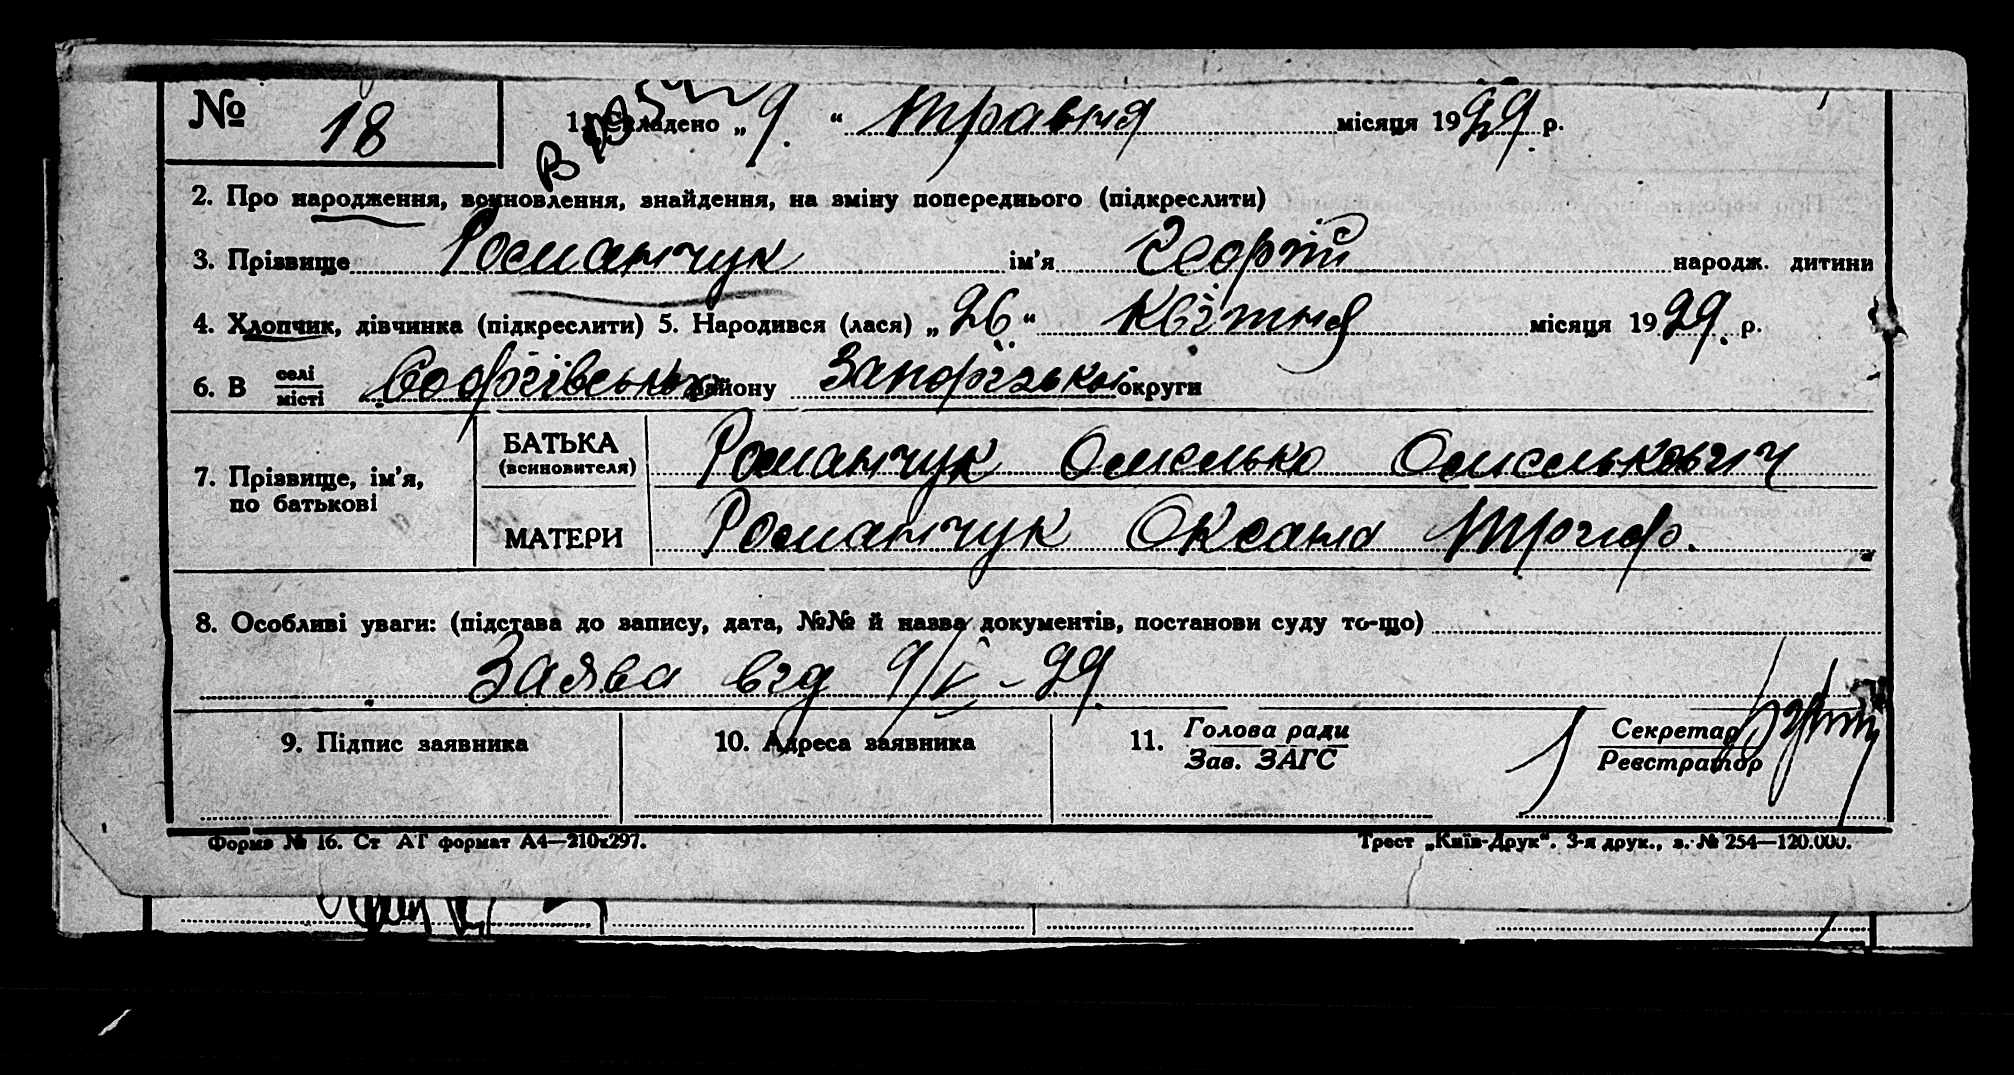 № 18 1. Складено „9“ травня місяця 1929 р.
2. Про народження, вчиновлення, знайдення, на зміну попереднього (підкреслити)
3. Прізвище Романчук ім'я Георгій народж. дитини
4. Хлопчик, дівчинка (підкреслити) 5. Народився (лася) „26“ квітня місяця 1929 р.
6. В селі місті Софіївського району Запорізької округи
7. Прізвище, ім'я, по батькові
БАТЬКА (всиновителя) Романчук Омелько Омелькович
МАТЕРИ Романчук Оксана Триф.
8. Особливі уваги: (підстава до запису, дата, №№ й назва документів, постанови суду то-що)
Заява від 9/V – 29
9. Підпис заявника 10. Адреса заявника 11. Голова ради Зав. ЗАГС Секретар Реєстратор
Форма № 16. Ст АТ формат А4—210х297. Трест „Київ-Друк“. 3-я друк., з. № 254—120.000.